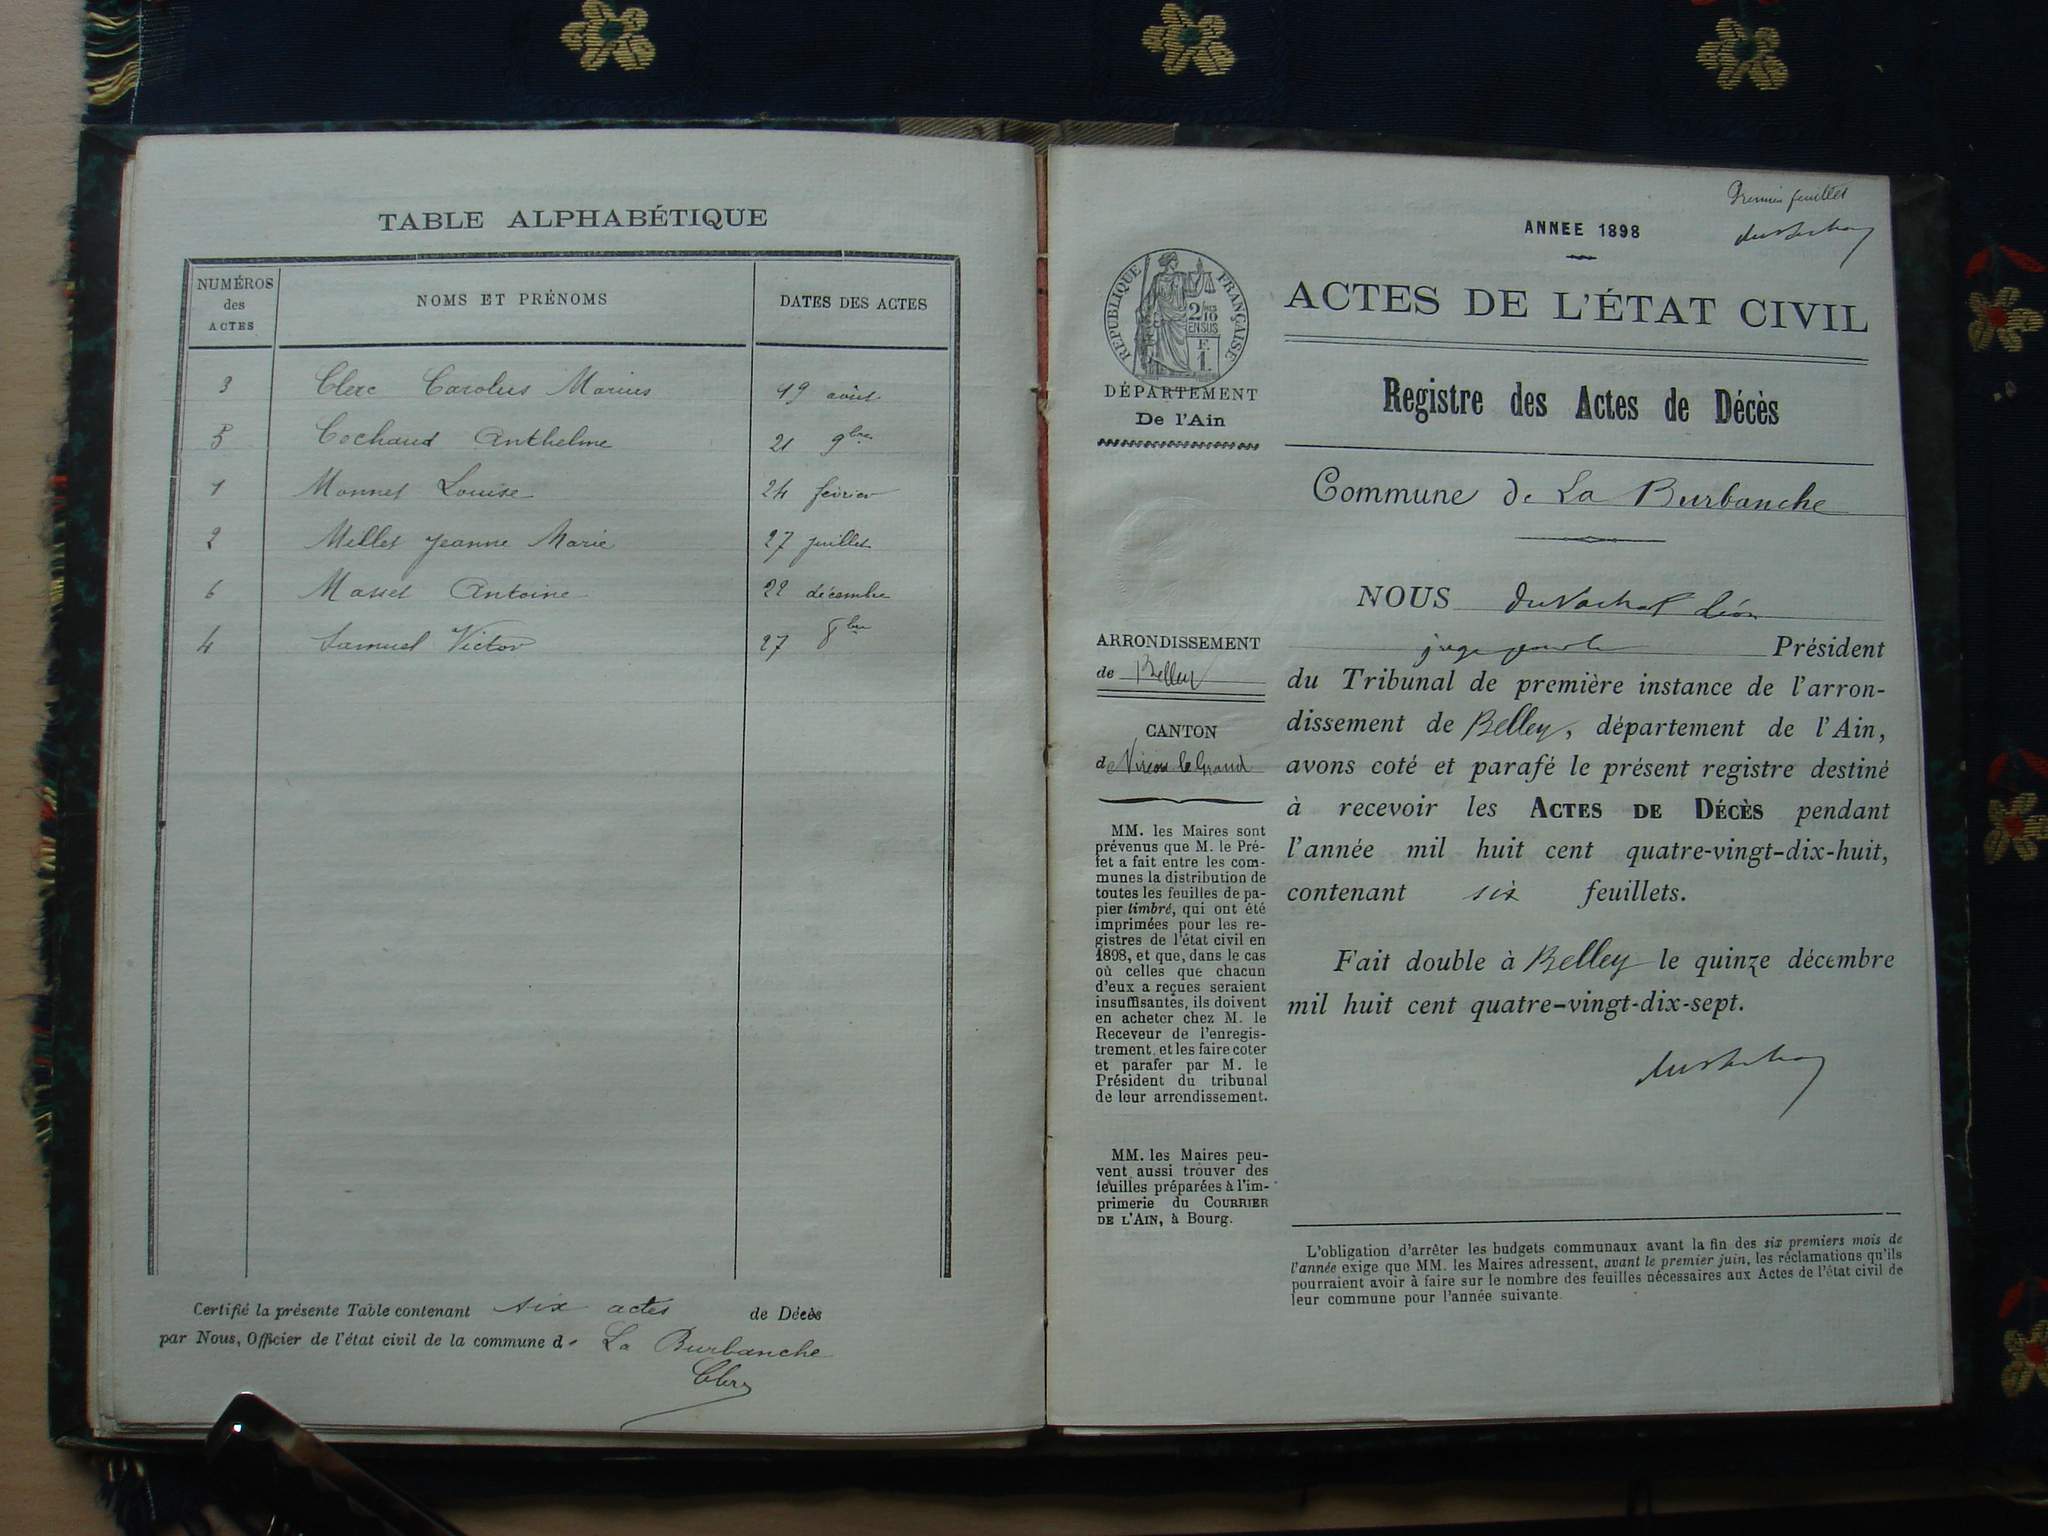 TABLE ALPHABÉTIQUE
NUMÉROS
des
ACTES
NOMS ET PRÉNOMS
DATES DES ACTES
3 Clerc Carolus Marius 19 août
5 Cochaud Anthelme 21 9bre
1 Monnet Louise 24 février
2 Millet Jeanne Marie 27 juillet
6 Masset Antoine 22 décembre
4 Samuel Victor 27 8bre
Certifié la présente Table contenant six actes de Décès
par Nous, Officier de l'état civil de la commune de La Burbanche
Clerc
Premier feuillet
ANNEE 1898
RÉPUBLIQUE FRANÇAISE
2/10
EN SUS
F.
1.
ACTES DE L'ÉTAT CIVIL
DÉPARTEMENT
De l'Ain
Registre des Actes de Décès
Commune de La Burbanche
NOUS
Président
du Tribunal de première instance de l'arron-
dissement de Belley, département de l'Ain,
avons coté et parafé le présent registre destiné
à recevoir les ACTES DE DÉCÈS pendant
l'année mil huit cent quatre-vingt-dix-huit,
contenant six feuillets.
Fait double à Belley le quinze décembre
mil huit cent quatre-vingt-dix-sept.
ARRONDISSEMENT
de Belley
CANTON
de Virieu le Grand
MM. les Maires sont
prévenus que M. le Pré-
fet a fait entre les com-
munes la distribution de
toutes les feuilles de pa-
pier timbré, qui ont été
imprimées pour les re-
gistres de l'état civil en
1898, et que, dans le cas
où celles que chacun
d'eux a reçues seraient
insuffisantes, ils doivent
en acheter chez M. le
Receveur de l'enregis-
trement, et les faire coter
et parafer par M. le
Président du tribunal
de leur arrondissement.
MM. les Maires peu-
vent aussi trouver des
feuilles préparées à l'im-
primerie du COURRIER
DE L'AIN, à Bourg.
L'obligation d'arrêter les budgets communaux avant la fin des six premiers mois de
l'année exige que MM. les Maires adressent, avant le premier juin, les réclamations qu'ils
pourraient avoir à faire sur le nombre des feuilles nécessaires aux Actes de l'état civil de
leur commune pour l'année suivante.